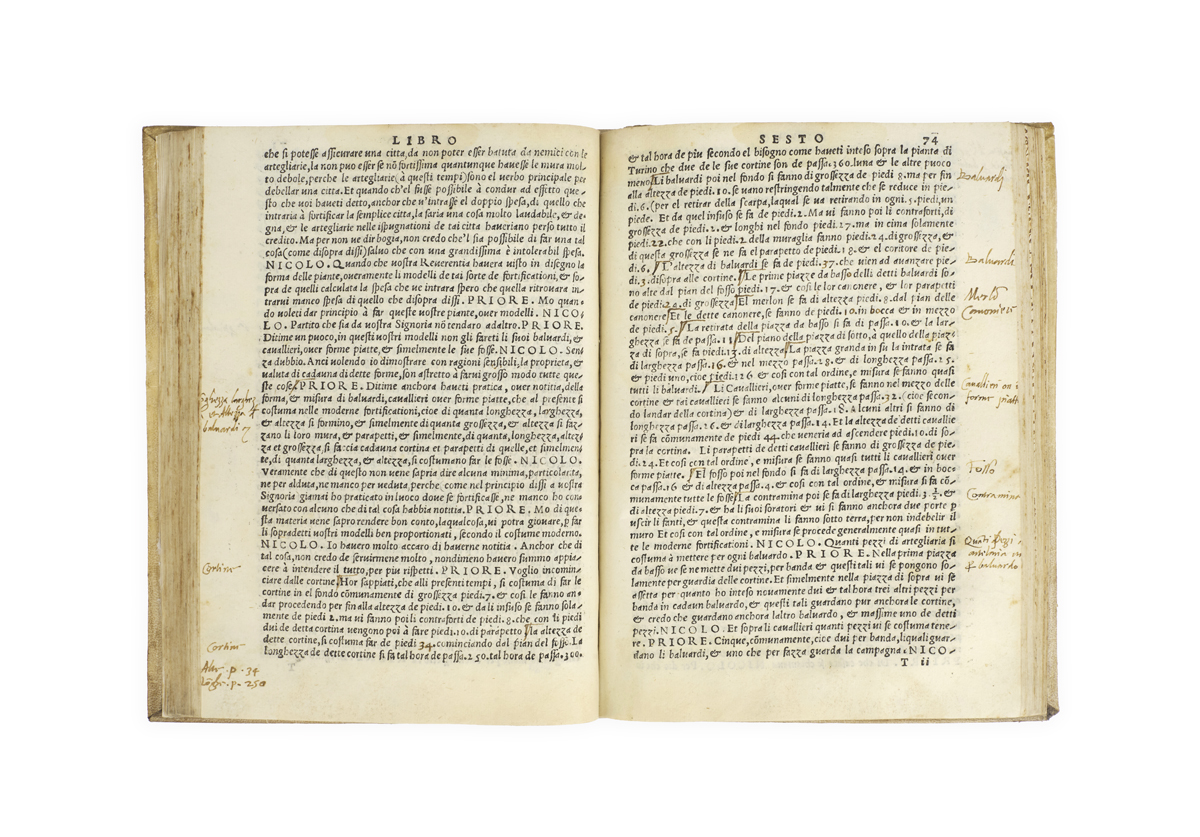 LIBRO
che si potesse assicurare una citta, da non poter esser batuta da nemici con le
artegliarie, la non puo esser se nõ fortissima quantunque hauesse le mura mol
to debole, perche le artegliarie (a questi tempi) sono el uerbo principale per
debellar una citta. Et quando ch'el fusse possibile à condur ad effetto que-
sto che uoi haueti detto, anchor che u'intrasse el doppio spesa, di quello che
intraria à fortificar la semplice citta, la saria una cosa molto laudabile, & de-
gna, & le artegliarie nelle ispugnationi de tai citta haueriano perso tutto il
credito. Ma per non ue dir bogia, non credo che'l sia possibile di far una tal
cosa (come disopra dissi) saluo che con una grandissima è intolerabil spesa.
NICOLO. Quando che uostra Reuerentia hauera uisto in disegno la
forma delle piante, oueramente li modelli de tai sorte de fortificationi, & so-
pra de quelli calculata la spesa che ue intrara spero che quella ritrouara in
trarui manco spesa di quello che disopra dissi. PRIORE. Mo quan-
do uoleti dar principio à far queste uostre piante, ouer modelli. NICO-
LO. Partito che sia da uostra Signoria nõ tendaro ad altro. PRIORE.
Ditime un puoco, in questi uostri modelli non gli sareti li suoi baluardi, &
cauallieri, ouer forme piatte, & simelmente le sue fosse. NICOLO. Sen
za dubbio. Anci uolendo io dimostrare con ragioni sensibili, la proprieta, &
ualuta di cadauna di dette forme, son astretto à farui grosso modo tutte que
ste cose. PRIORE. Ditime anchora haueti pratica, ouer notitia, della
forma, & misura di baluardi, cauallieri ouer forme piatte, che al presente si
costuma nelle moderne fortificationi, cioe di quanta longhezza, larghezza,
& altezza si formino, & simelmente di quanta grossezza, & altezza si faz-
zano li loro mura, & parapetti, & simelmente, di quanta, longhezza, altezz
za et grossezza si faccia cadauna cortina et parapetti di quelle, et simelmen
te, di quanta larghezza, & altezza, si costumano far le fosse. NICOLO.
Veramente che di questo non uene sapria dire alcuna minima, particolarita,
ne per alduta, ne manco per ueduta, perche, come nel principio dissi a uostra
Signoria giamai ho praticato in luoco doue se fortificasse, ne manco ho con
uersato con alcuno che di tal cosa habbia notitia. PRIORE. Mo di que-
sta materia uene sapro rendere bon conto, laqualcosa, ui potra giouare, p far
li sopradetti uostri modelli ben proportionati, secondo il costume moderno.
NICOLO. Io hauero molto accaro di hauerne notitia. Anchor che di
tal cosa, non credo de seruirmene molto, nondimeno hauero summo appia-
cere à intendere il tutto, per piu rispetti. PRIORE. Voglio incomin-
ciare dalle cortine. Hor sappiati, che alli presenti tempi, si costuma di far le
cortine in el fondo cõmunamente di grossezza piedi. 7. & cosi le fanno an-
dar procedendo per fin alla altezza de piedi. 10. & da li insuso se fanno sola-
mente de piedi 2. ma ui fanno poi li contraforti de piedi. 8. che con li piedi
dui de detta cortina uengono poi à fare piedi. 10. di parapetto La altezza de
dette cortine, si costuma far de piedi 34. cominciando dal pian del fosso. La
longhezza de dette cortine si fa tal hora de passa. 250. tal hora de passa. 300.
baluardi
Cortine
Cortine
Alte. p. 34
Lõghe. p. 250
SESTO 74
& tal hora de piu secondo el bisogno come haueti inteso sopra la pianta di
Turino che due de le sue cortine son de passa. 360. luna & le altre puoco
meno Li baluardi poi nel fondo si fanno di grossezza de piedi 8. ma per fin
alla altezza de piedi. 10. se uano restringendo talmente che se reduce in pie-
di. 6. (per el retirar della scarpa, laqual se ua retirando in ogni. 5. piedi, un
piede. Et da quel insuso se fa de piedi. 2. Ma ui fanno poi li contraforti, di
grossezza de piedi. 2. & longhi nel fondo piedi. 27. ma in cima solamente
piedi. 22. che con li piedi 2. della muraglia fanno piedi. 24. di grossezza, &
di questa grossezza se ne fa el parapetto de piedi. 18. & el coritore de pie-
di. 6. L'altezza di baluardi se fa de piedi. 37. che uien ad auanzare pie-
di. 3. disopra alle cortine. Le prime piazze da basso delli detti baluardi so-
no alte dal pian del fosso piedi. 17. & cosi le lor canonere, & lor parapetti
de piedi. 20. di grossezza El merlon se fa di altezza piedi. 8. dal pian delle
canonere Et le dette canonere, se fanno de piedi. 10. in bocca & in mezzo
de piedi. 5. La retirata della piazza da basso si fa di passa. 10. & la lar-
ghezza se fa de passa. 11 Del piano della piazza di sotto, à quello della piaz-
za di sopra, se fa piedi. 13. di altezza La piazza granda in su la intrata se fa
di larghezza passa. 16. & nel mezzo passa. 28. & di longhezza passa. 25.
& piedi uno, cioe piedi. 126 & cosi con tal ordine, e misura se fanno quasi
tutti li baluardi. Li Cauallieri, ouer forme piatte, se fanno nel mezzo delle
cortine & tai cauallieri se fanno alcuni di longhezza passa. 32. (cioe secon-
do landar della cortina) & di larghezza passa. 18. Alcuni altri si fanno di
longhezza passa. 26. & di larghezza passa. 14. Et la altezza de detti caualie
ri se fa cõmunamente de piedi 44. che ueneria ad ascendere piedi. 10. di so-
pra la cortina. Li parapetti de detti cauallieri se fanno di grossezza de pie-
di. 24. Et cosi con tal ordine, e misura se fanno quasi tutti li cauallieri ouer
forme piatte. El fosso poi nel fondo si fa di larghezza passa. 14. & in boc-
ca passa. 16 & di altezza passa. 4. & cosi con tal ordine, & misura si fa cõ-
munamente tutte le fosse La contramina poi se fa di larghezza piedi. 3. ½. &
di altezza piedi. 7. & ha li suoi soratori & ui si fanno anchora due porte p
uscir li fanti, & questa contramina li fanno sotto terra, per non indebelir el
muro Et cosi con tal ordine, e misura se procede generalmente quasi in tut-
te le moderne fortificationi. NICOLO. Quanti pezzi di artegliaria si
costuma à mettere per ogni baluardo. PRIORE. Nella prima piazza
da basso ue se ne mette dui pezzi, per banda & questi tali ui se pongono so-
lamente per guardia delle cortine. Et simelmente nella piazza di sopra ui se
assetta per quanto ho inteso nouamente dui & tal hora tre altri pezzi per
banda in cadaun baluardo, & questi tali guardano pur anchora le cortine,
& credo che guardano anchora laltro baluardo, & massime uno de detti
pezzi. NICOLO. Et sopra li cauallieri quanti pezzi ui se costuma tene-
re. PRIORE. Cinque, cõmunamente, cioe dui per banda, liquali guar-
dano li baluardi, & uno che per fazza guarda la campagna. NICO-
T ii
Baluardi
Baluardi
Merlõ
Canoniere
Cauallieri
forme piatt
Fosso
Contramina
Quãti pezzi
baluardo